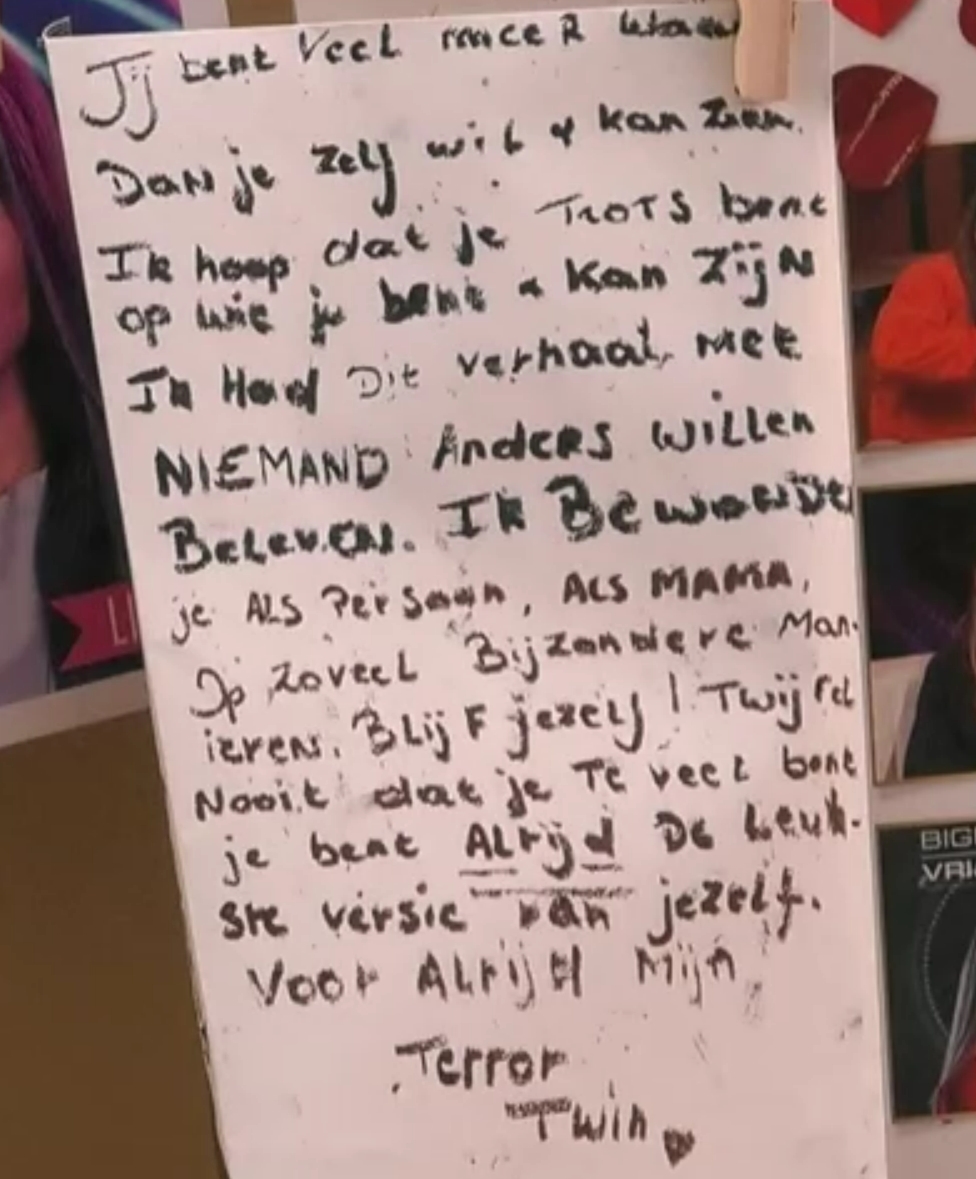 Jij bent Veel meer
Dan je zelf wil & kan zien.
Ik hoop dat je TROTS bent
op wie je bent & kan zijn
Ik Had Dit verhaal met
NIEMAND Anders willen
Beleven. Ik Bewonder
je ALS Persoon, ALS MAMA,
Op zoveel Bijzondere Man-
ieren. Blijf jezelf! Twijfel
Nooit dat je Te veel bent
je bent Altijd De Leuk-
ste versie van jezelf.
Voor Altijd Mijn
Terror
Twin
LI
BIG
VRI